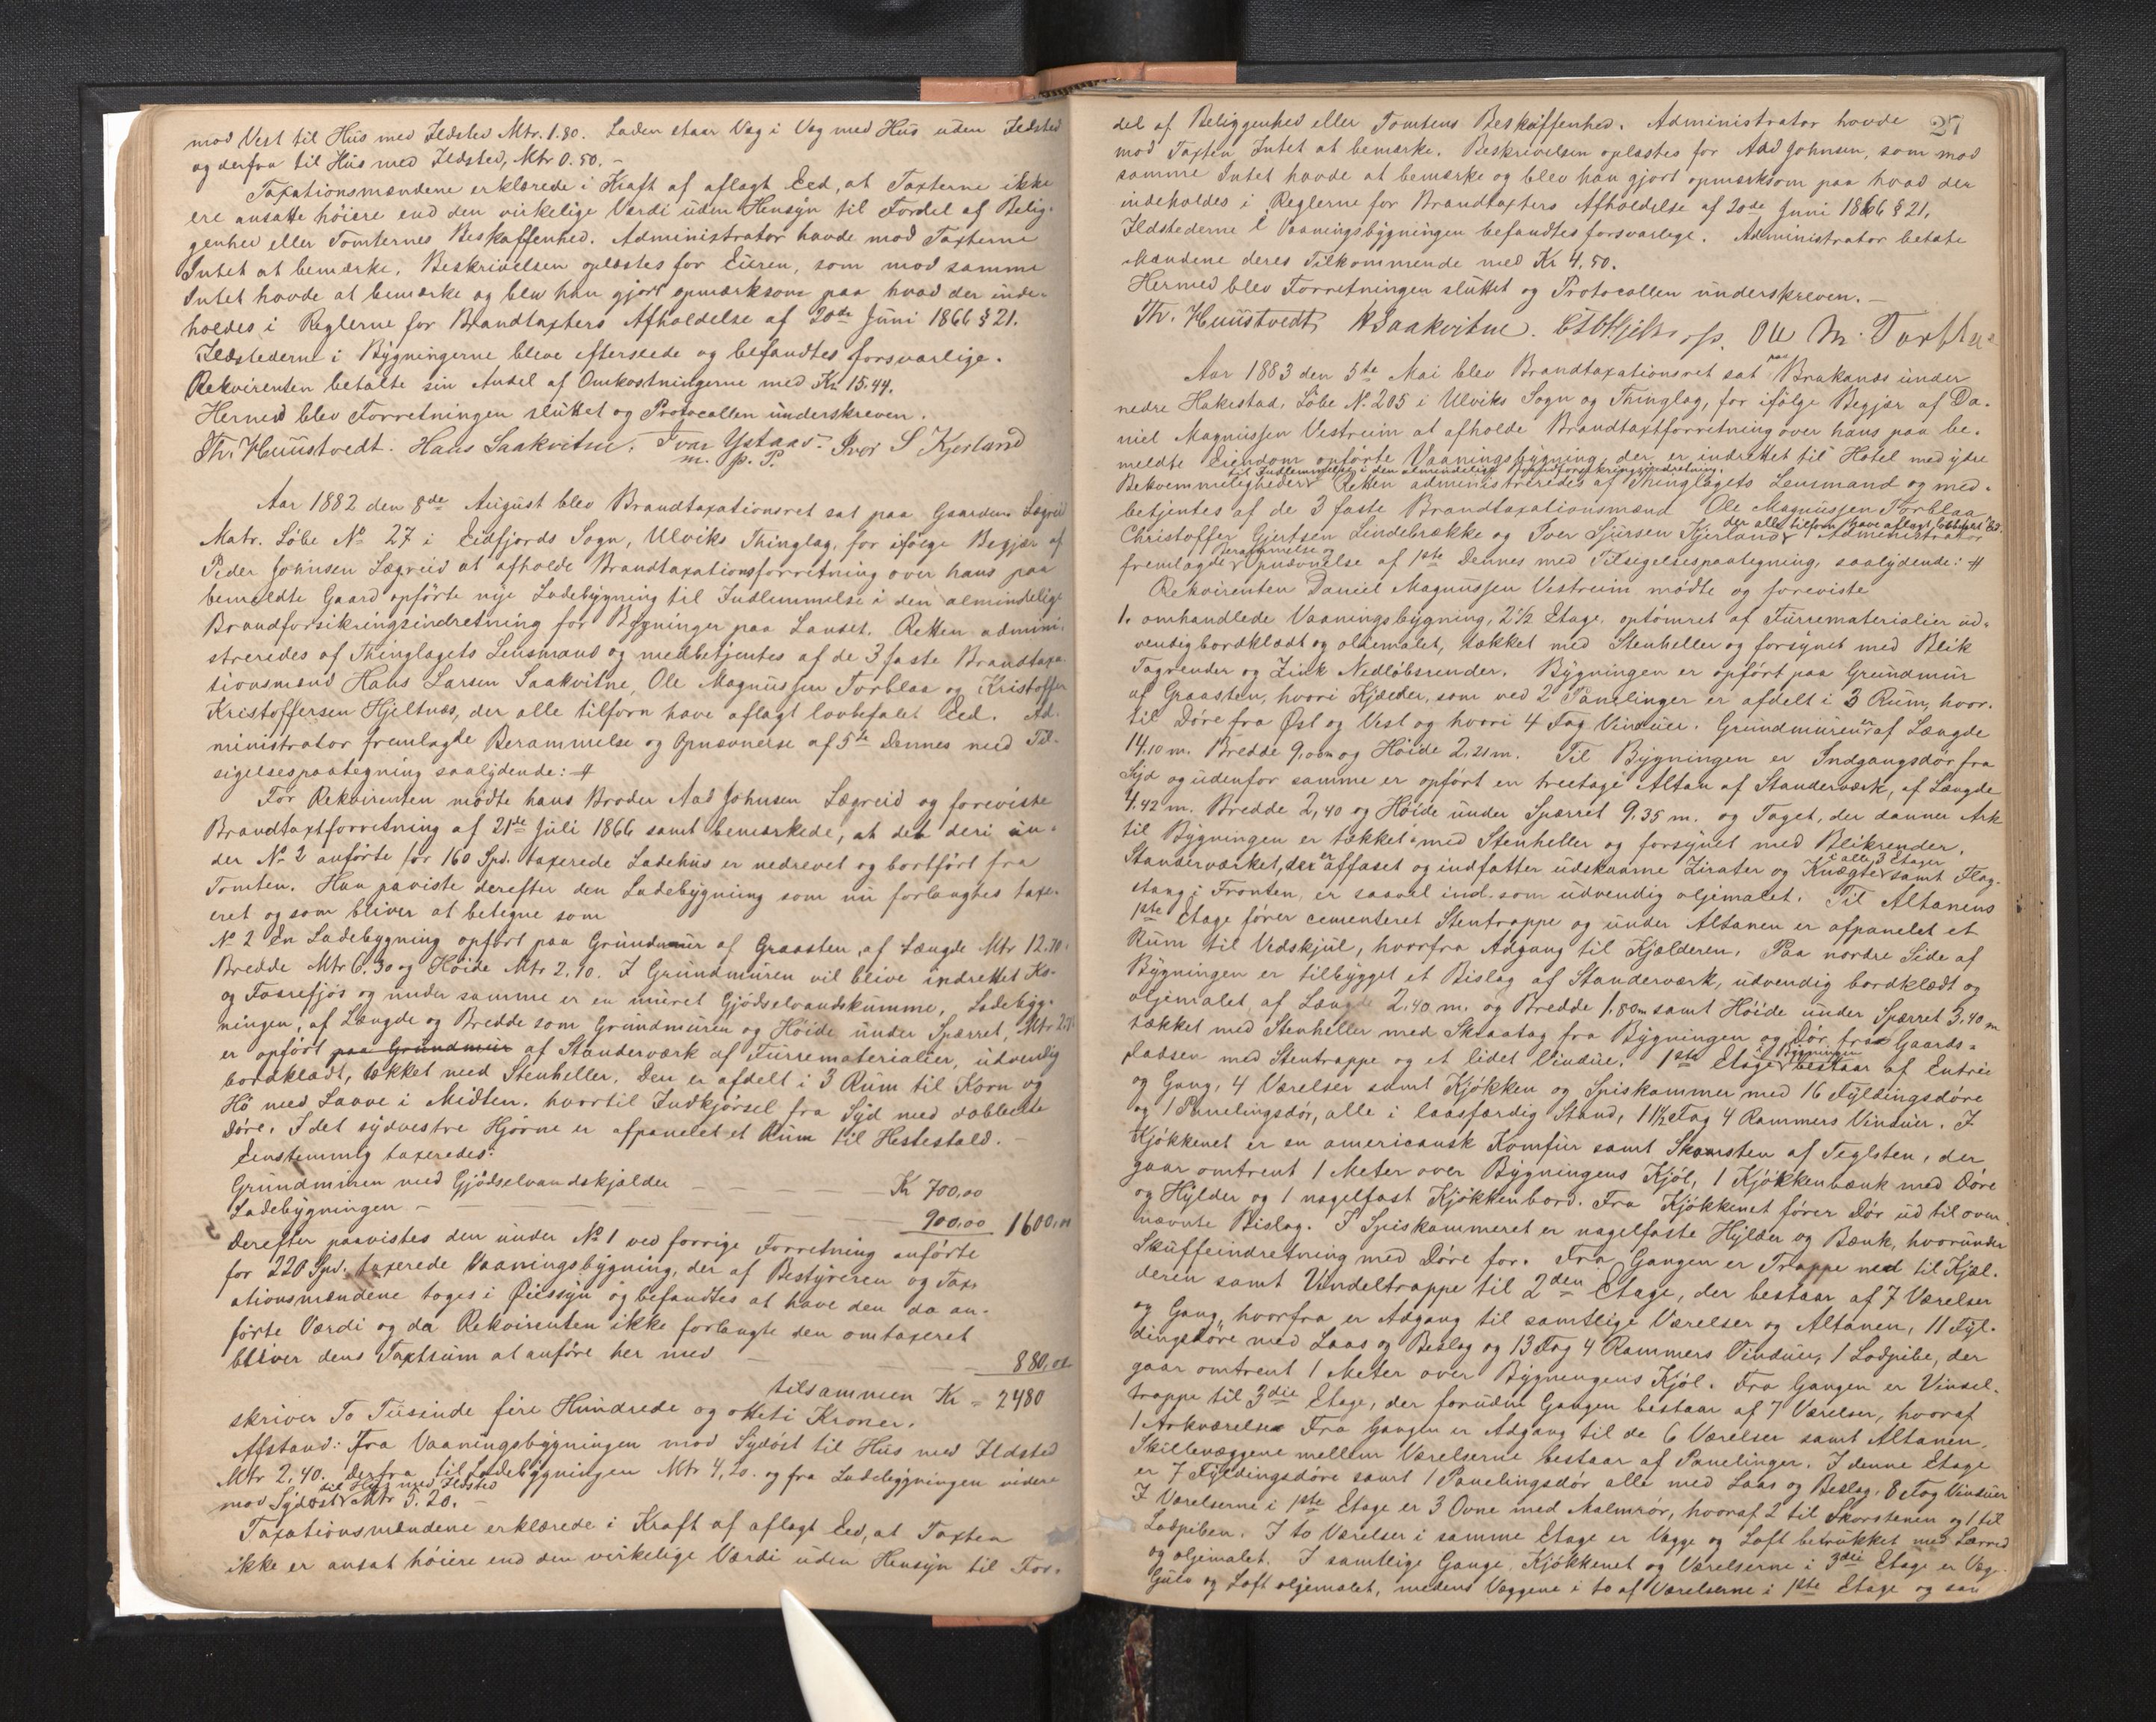 mod Vest til Hus med Ildsted Mtr. 1.80. Laden staar Væg i Væg med Hus uden Ildsted
og derfra til Hus med Ildsted, Mtr 0.50. –
Taxationsmændene erklærede i Kraft af aflagt Eed, at Taxterne ikke
ere ansatte höiere end den virkelige Værdi uden Hensyn til Fordel af Belig-
genhed eller Tomternes Beskaffenhed. Administrator havde mod Taxterne
Intet at bemærke. Beskrivelsen oplæstes for Eieren, som mod samme
Intet havde at bemærke og blev han gjort opmærksom paa hvad der inde-
holdes i Reglerne for Brandtaxters Afholdelse af 20de Juni 1866 § 21.
Ildstederne i Bygningerne bleve efterseede og befandtes forsvarlige.
Rekvirenten betalte sin Andel af Omkostningerne med Kr. 15.44.
Hermed blev Forretningen sluttet og Protocollen underskreven.
Th. Huustvedt. Hans Saakvitne. Ivar Ystaas. Iver S Kjerland
m. p. P.
Aar 1882 den 8de August blev Brandtaxationsret sat paa Gaarden Lægreid
Matr. Løbe No 27 i Eidfjords Sogn, Ulviks Thinglag, for ifølge Begjær af
Peder Johnsen Lægreid at afholde Brandtaxationsforretning over hans paa
bemeldte Gaard opförte nye Ladebygning til Indlemmelse i den almindelige
Brandforsikringsindretning for Bygninger paa Landet. Retten admini-
streredes af Thinglagets Lensmand og medbetjentes af de 3 faste Brandtaxa-
tionsmænd Hans Larsen Saakvitne, Ole Magnussen Torblaa og Kristoffer
Kristoffersen Hjeltnæs, der alle tilforn have aflagt lovbefalet Eed. Ad-
ministrator fremlagde Berammelse og Opnævnelse af 5te Dennes med Til-
sigelsespaategning saalydende: #
For Rekvirenten mödte hans Broder Aad Johnsen Lægreid og foreviste
Brandtaxtforretning af 21de Juli 1866 samt bemærkede, at det deri un-
der No 2 anförte for 160 Spd. taxerede Ladehus er nedrevet og bortfört fra
Tomten. Han paaviste derefter den Ladebygning som nu forlangtes taxe-
ret og som bliver at betegne som
No 2 En Ladebygning opfört paa Grundmuur af Graasten, af Længde Mtr 12.70.
Bredde Mtr 6.30 og Höide Mtr 2.10. I Grundmuren vil blive indrettet Ko-
og Faarefjös og under samme er en muret Gjödselvandskumme, Ladebyg-
ningen, af Længde og Bredde som Grundmuren og Höide under Spærret, Mtr 2.
er opfört paa Grundmur af Standerværk af Furrematerialier, udvendig
bordklædt, tækket med Stenheller. Den er afdelt i 3 Rum til Korn og
Hö med Laave i Midten, hvortil Indkjörsel fra Syd med dobbelte
Döre. I det sydvestre Hjörne er afpanelet et Rum til Hestestald. –
Eenstemmig taxeredes:
Grundmuren med Gjödselvandskjælder – – – – Kr 700,00
Ladebygningen – – – – 900,00 1600,00
Derefter paavistes den under No 1 ved forrige Forretning anförte
for 220 Spd. taxerede Vaaningsbygning, der af Bestyreren og Tax-
ationsmændene toges i Öiesyn og befandtes at have den da an-
förte Værdi og da Rekvirenten ikke forlangte den omtaxeret
bliver dens Taxtsum at anföre her med – – – 880,00
tilsammen Kr = 2480
skriver To Tusinde fire Hundrede og otteti Kroner.
Afstand: Fra Vaaningsbygningen mod Sydöst til Hus med Ildsted
Mtr 2,40. Derfra til Ladebygningen Mtr 4,20. og fra Ladebygningen videre
til Hus med Ildsted
mod Sydöst Mtr 5.20. –
Taxationsmændene erklærede i Kraft af aflagt Eed, at Taxten
ikke er ansat höiere end den virkelige Værdi uden Hensyn til For-
27
del af Beliggenhed eller Tomtens Beskaffenhed. Administrator havde
mod Taxten Intet at bemærke. Beskrivelsen oplæstes for Aad Johnsen, som mod
samme Intet havde at bemærke og blev han gjort opmærksom paa hvad der
indeholdes i Reglerne for Brandtaxters Afholdelse af 20de Juni 1866 § 21.
Ildstederne i Vaaningsbygningen befandtes forsvarlige. Administrator betalte
Mændene deres Tilkommende med Kr 4,50.
Hermed blev Forretningen sluttet og Protocollen underskreven. –
Th. Huustvedt, HSaakvitne. Ole M. Torblaa
Aar 1883 den 5te Mai blev Brandtaxationsret sat paa Brakanæs under
nedre Hakestad, Løbe No. 205 i Ulviks Sogn og Thinglag, for ifølge Begjær af Da-
niel Magnussen Vestreim at afholde Brandtaxtforretning over hans paa be-
meldte Eiendom opförte Vaaningsbygning, der er indrettet til Hotel med ydre
til Indlemmelse i den almindelige Brandforsikringsindretning.
Bekvemmeligheder. Retten administreredes af Thinglagets Lensmand og med-
betjentes af de 3 faste Brandtaxationsmænd Ole Magnussen Torblaa,
Christoffer Gjertsen Lindebrække og Iver Sjursen Kjerland, Administrator
der alle tilforn have aflagt lovbefalet Ed.
Berammelse og
fremlagde Opnævnelse af 1ste Dennes med Tilsigelsespaategning, saalydende: #
Rekvirenten Daniel Magnussen Vestreim mödte og foreviste
1. omhandlede Vaaningsbygning, 2 1/2 Etage, optömret af Furrematerialier ud-
vendig bordklædt og oliemalet, tækket med Stenheller og forsynet med Blik
Tagrender og Zink Nedlöbsrender. Bygningen er opfört paa Grundmur
af Graasten, hvori Kjælder, som ved 2 Panelinger er afdelt i 3 Rum, hvor-
til Döre fra Öst og Vest og hvori 4 Fag Vinduer. Grundmuren er af Længde
14,10 m. Bredde 9,00 m og Höide 2,21 m. Til Bygningen er Indgangsdör fra
Syd og udenfor samme er opfört en treetages Altan af Standerværk, af Længde
4.42 m. Bredde 2,40 og Höide under Spærret 9.35 m. og Taget, der danner Ark
til Bygningen er tækket med Stenheller og forsynet med Blikrender.
Standerværket, der er affaset og indfatter udskaarne Zirater og Knægte i alle 3 Etager samt Flag-
stang i Fronten, er saavel ind- som udvendig oljemalet. Til Altanens
1ste Etage förer cementeret Stentrappe og under Altanen er afpanelet et
Rum til Vedskjul, hvorfra Adgang til Kjælderen. Paa nordre Side af
Bygningen er tilbygget et Bislag af Standerværk, udvendig bordklædt og
oljemalet af Længde 2,40 m. og Bredde 1,80 m samt Höide under Spærret 3,40 m
tækket med Stenheller med Skraatag fra Bygningen og Dör fra Gaards-
pladsen med Stentrappe og et lidet Vindue. 1ste Etage i Bygningen bestaar af Entrée
og Gang, 4 Værelser samt Kjökken og Spiskammer med 16 Fyldingsdöre
og 1 Panelingsdör, alle i laasfærdig Stand, 11 1/2 Fag 4 Rammers Vinduer. I
Kjökkenet er en americansk Komfur samt Skorsten af Teglsten, der
gaar omtrent 1 Meter over Bygningens Kjöl, 1 Kjökkenbænk med Döre
og Hylder og 1 nagelfast Kjökkenbord. Fra Kjökkenet förer Dör ud til oven-
nævnte Bislag. I Spiskammeret er nagelfaste Hylder og Bænk, hvorunder
Skuffeindretning med Döre for. Fra Gangen er Trappe ned til Kjæl-
deren samt Vindeltrappe til 2den Etage, der bestaar af 7 Værelser
og Gang, hvorfra er Adgang til samtlige Værelser og Altanen, 11 Fyl-
dingsdöre med Laas og Beslag og 13 Fag 4 Rammers Vinduer, 1 Lodpibe, der
gaar omtrent 1 Meter over Bygningens Kjöl. Fra Gangen er Vindel-
trappe til 3die Etage, der foruden Gangen bestaar af 7 Værelser, hvoraf
1 Arkværelse. Fra Gangen er Adgang til de 6 Værelser samt Altanen.
Skillevæggene mellem Værelserne bestaar af Panelinger. I denne Etage
er 7 Fyldingsdöre samt 1 Panelingsdör alle med Laas og Beslag, 8 Fag Vinduer
I Værelserne i 1ste Etage er 3 Ovne med Malmrör, hvoraf 2 til Skorstenen og 1 til
Lodpiben. I to Værelser i samme Etage er Vægge og Loft betrukket med Lærred
og oljemalet. I samtlige Gange, Kjökkenet og Værelserne i 3die Etage er Væg-
Gulv og Loft oljemalet, medens Væggene i to af Værelserne i 1ste Etage og saa